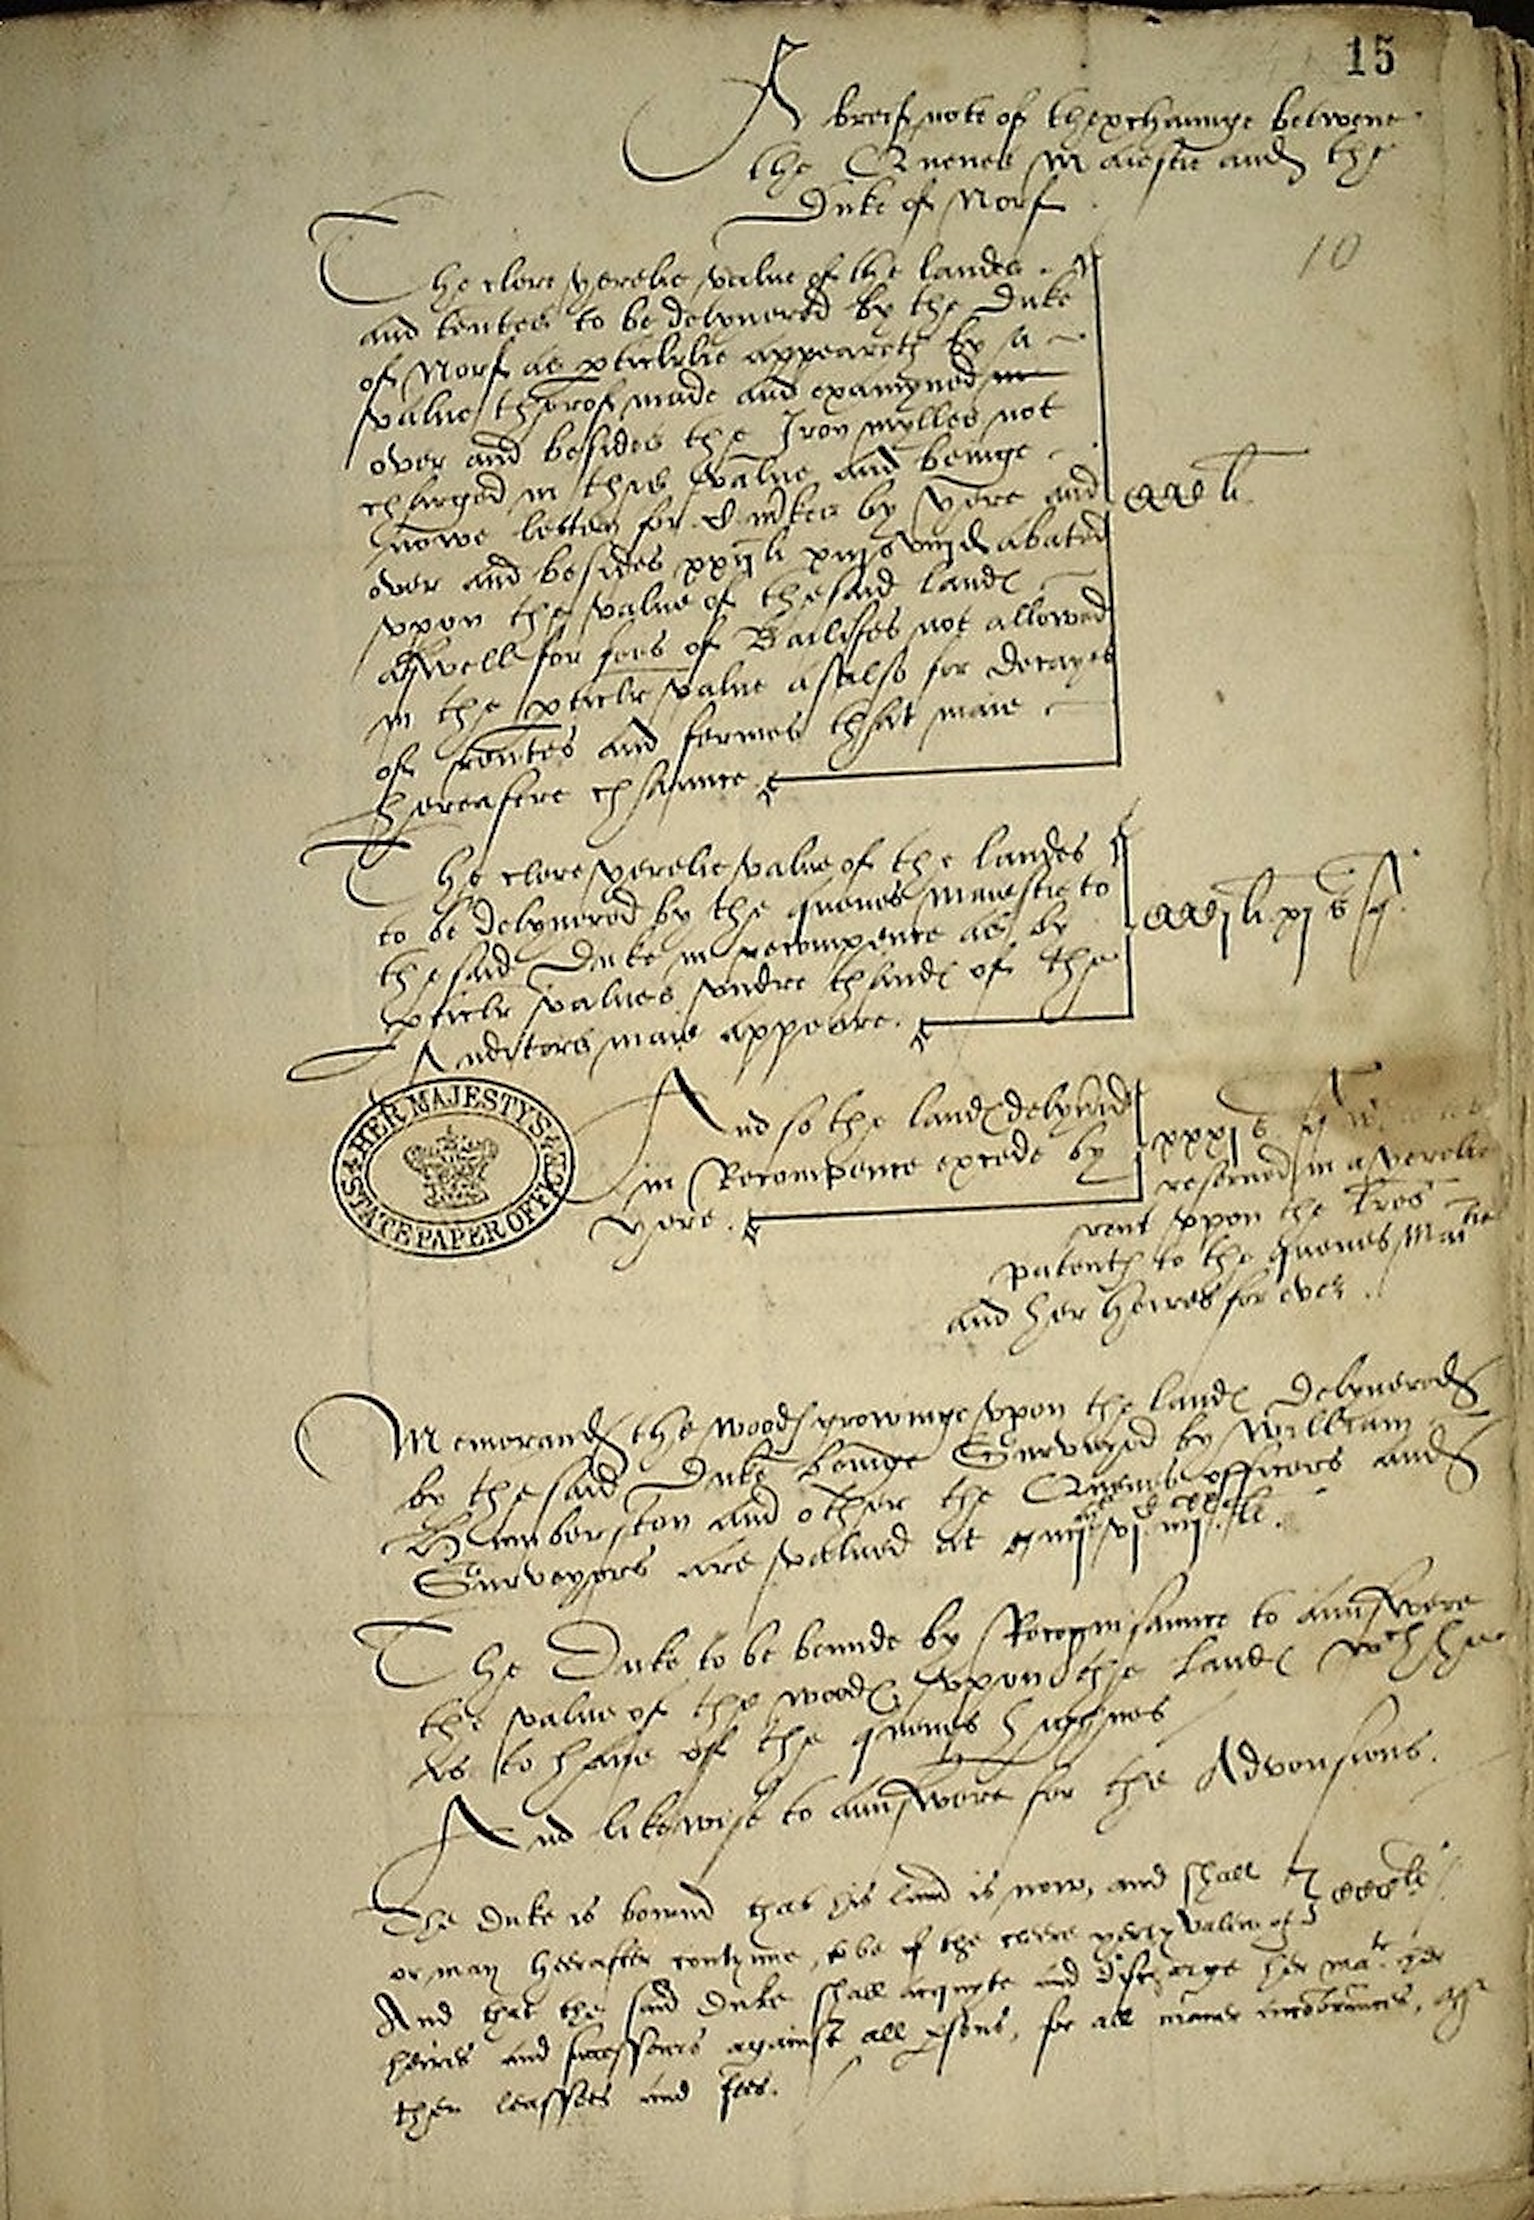 15
A breif note of thexchaunge betwene
the Quenes Maiestie and the
Duke of Norf
10
The clere yerelie value of the landes
and tentes to be delyuered by the Duke
of Norf as pticlerlie appeareth by a
value therof made and examyned
over and besides the Iron mylles not
charged in this value and beinge
nowe letten for by yere and
over and besides xxij li xiijs viijd abated
vpon the value of thesaid landes
aswell for fees of Bailifes not allowed
in the pticler value as also for decayes
of rentes and fermes that maie
hereaftre chaunce
The clere yerelie value of the landes
to be delyuered by the quenes Maiestie to
thesaid Duke in recompence as by
pticler values vndre thandes of the
Auditors maie appeare.
HER MAJESTY'S STATE PAPER OFFICE
And so the landes delyuered
in Recompence excede by
yere.
xxxjs
reserued in a yerelie
rent vpon the lres
patents to the quenes Matie
and her heires for ever.
Memorand the woods growinge vpon the landes delyuered
by thesaid Duke beinge Surveyed by William
Humberston and other the Quenes officers and
Surveyors are valued at
The Duke to be bounde by Recognisaunce to aunswere
the value of the woodes vpon the landes wch he
is to have of the quenes highnes
And likewise to aunswere for the Advousions.
The Duke is bownd that his land is now, and shall
or may heerafter contynue, to be of the cleere yerly value of
And that the said Duke shall acquyte and discharge her Mate her
heires and successours against all psons, for all maner incobrances,
then leasses and fees.